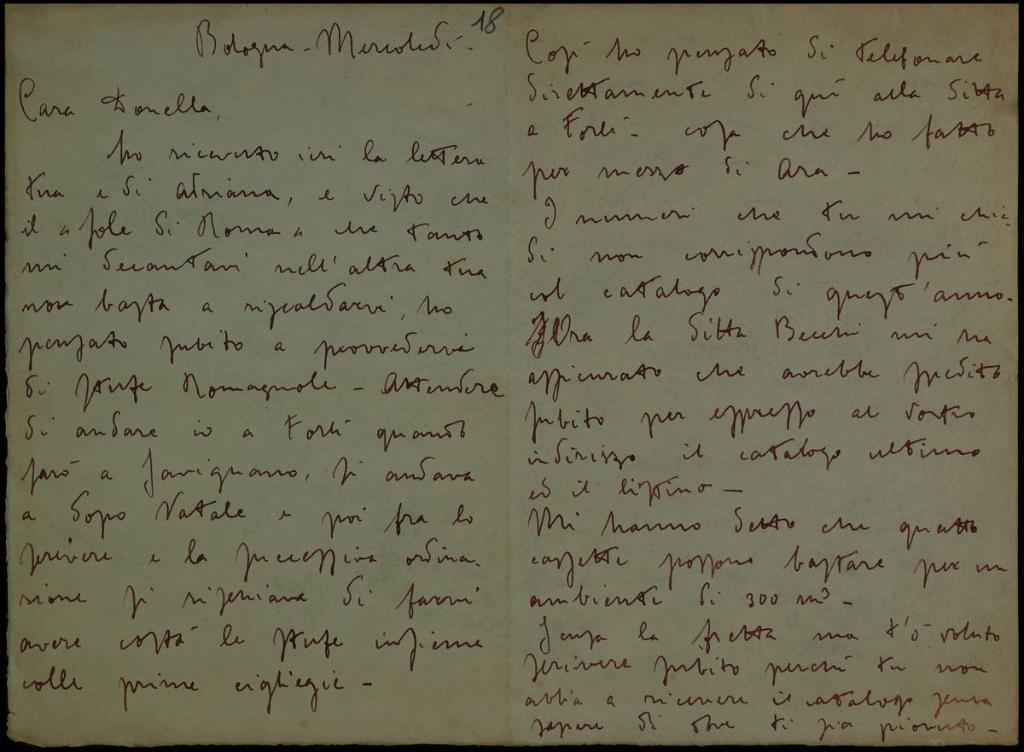 18
Bologna - Mercoledì -
Cara Donella,
ho ricevuto ieri la lettera
tua e di Adriana, e visto che
il sole di Roma che tanto
mi decantavi nell'altra tua
non basta a riscaldarvi, ho
pensato subito a provvedervi
di stufe Romagnole - Attendere
di andare io a Forlì quando
sarò a Savignano, si andava
a dopo Natale e poi fra lo
scrivere e la successiva ordina-
zione si rischiava di farvi
avere costà le stufe insieme
colle prime cigliegie -
Così ho pensato di telefonare
direttamente di quì alla Ditta
a Forlì - cosa che ho fatto
per mezzo di Ara -
I numeri che tu mi chie-
di non corrispondono più
col catalogo di quest'anno -
Ora la Ditta Becchi mi ha
assicurato che avrebbe spedito
subito per espresso al vostro
indirizzo il catalogo ultimo
ed il listino -
Mi hanno detto che quatto
cassette possono bastare per un
ambiente di 300 m³ -
Scusa la fretta ma t'ò voluto
scrivere subito perchè tu non
abbia a ricevere il catalogo senza
sapere di dove ti sia piovuto -